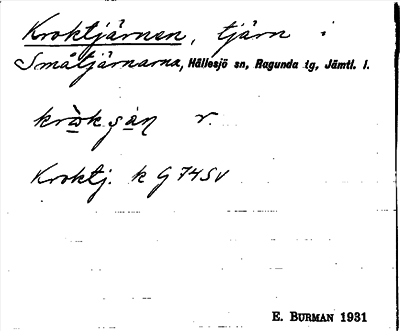 Kroktjärnen, tjärn i
Småtjärnarna, Hällesjö sn, Ragunda tg, Jämtl. l.
r.
Kroktj. k G 74 SV
E. BURMAN 1931